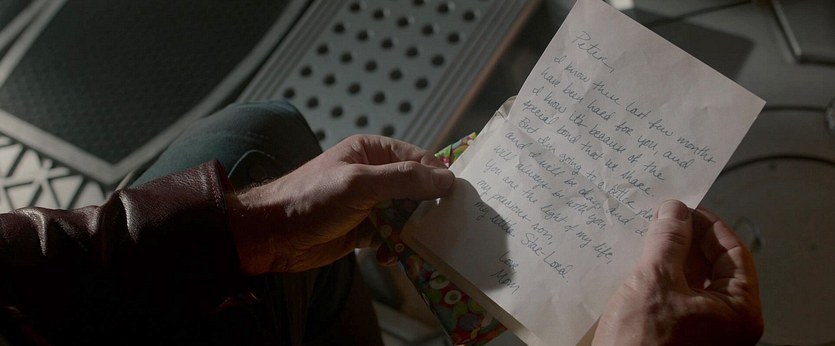 Peter,
I know these last few months
have been hard for you and
I know it's because of the
special bond that we share.
But I'm going to a
and it will be okay and I
will always be with you.
You are the light of my life,
my precious son,
my little Star-Lord
Love
Mom